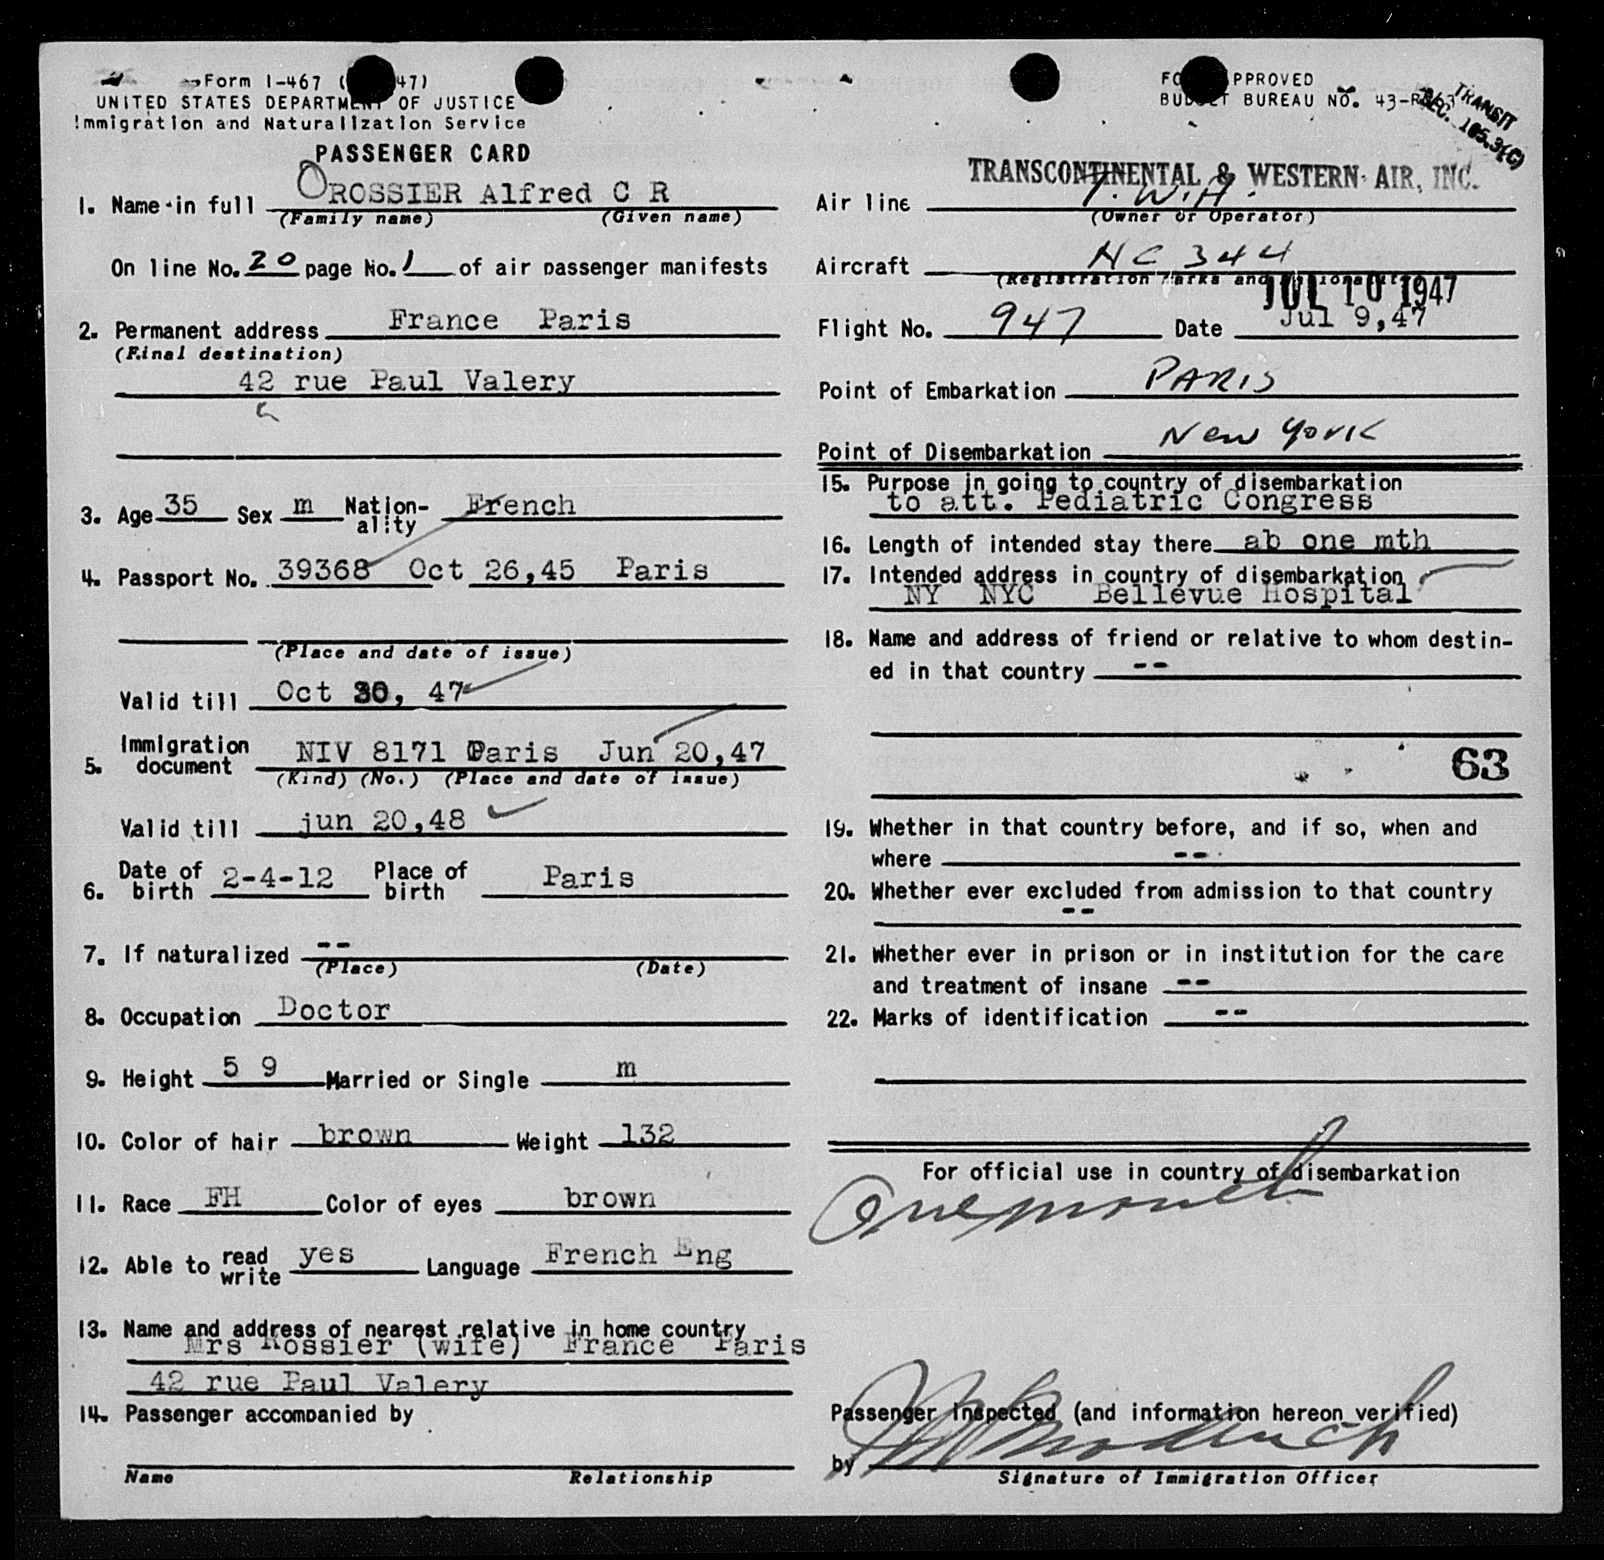 Form I-467 ( 47)
UNITED STATES DEPARTMENT OF JUSTICE
Immigration and Naturalization Service
PASSENGER CARD
1. Name in full ROSSIER Alfred C R
(Family name) (Given name)
On line No. 20 page No. 1 of air passenger manifests
2. Permanent address France Paris
(Final destination)
42 rue Paul Valery
3. Age 35 Sex m Nation-ality French
4. Passport No. 39368 Oct 26,45 Paris
(Place and date of issue)
Valid till Oct 30, 47
5. Immigration document NIV 8171 Paris Jun 20,47
(Kind) (No.) (Place and date of issue)
Valid till jun 20,48
6. Date of birth 2-4-12 Place of birth Paris
7. If naturalized --
(Place) (Date)
8. Occupation Doctor
9. Height 5 9 Married or Single m
10. Color of hair brown Weight 132
11. Race FH Color of eyes brown
12. Able to read write yes Language French Eng
13. Name and address of nearest relative in home country
Mrs Rossier (wife) France Paris
42 rue Paul Valery
14. Passenger accompanied by
Name Relationship
FO PPROVED
BUDGET BUREAU NO. 43-R
TRANSIT
SEC. 105.3(C)
TRANSCONTINENTAL & WESTERN AIR, INC.
Air line T.W.A.
(Owner or Operator)
Aircraft NC 344
(Registration marks and nationality)
JUL 10 1947
Flight No. 947 Date Jul 9,47
Point of Embarkation PARIS
Point of Disembarkation New York
15. Purpose in going to country of disembarkation
to att. Pediatric Congress
16. Length of intended stay there ab one mth
17. Intended address in country of disembarkation
NY NYC Bellevue Hospital
18. Name and address of friend or relative to whom destin-
ed in that country --
63
19. Whether in that country before, and if so, when and
where --
20. Whether ever excluded from admission to that country
--
21. Whether ever in prison or in institution for the care
and treatment of insane --
22. Marks of identification --
For official use in country of disembarkation
One month
Passenger inspected (and information hereon verified)
by
Signature of Immigration Officer